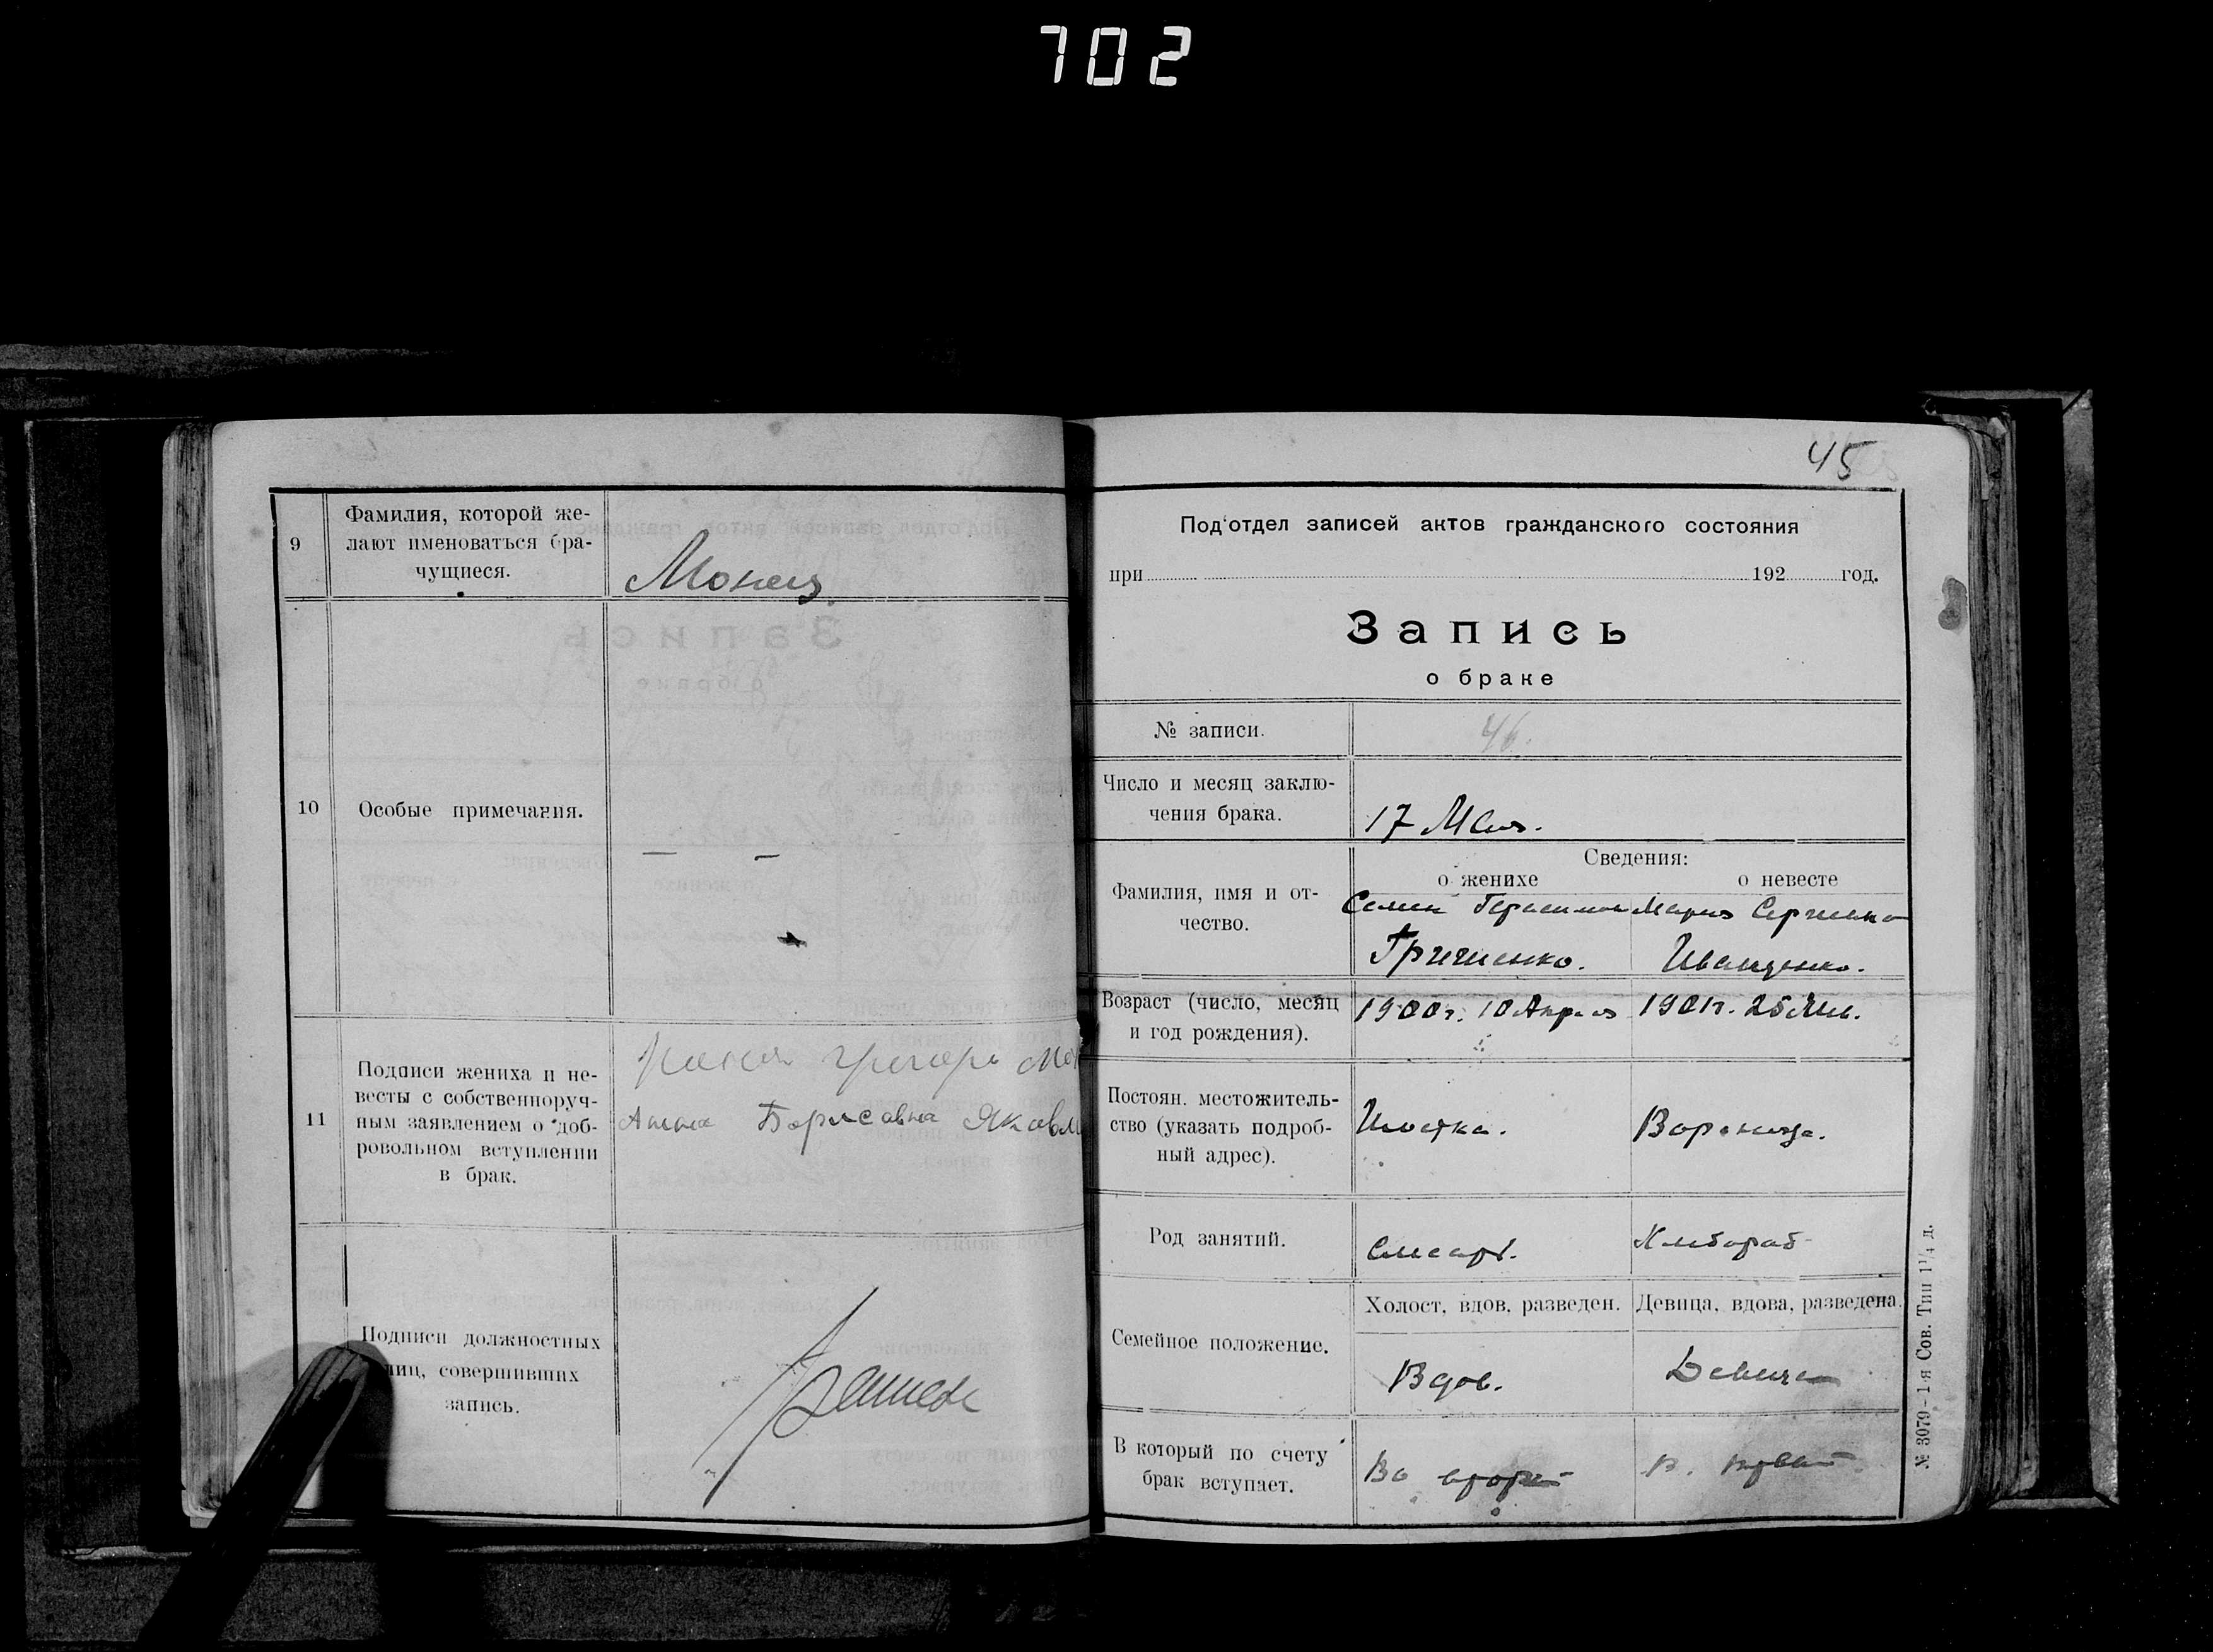 702
9
Фамилия, которой же-
лают именоваться бра-
чущиеся.
Монец
10
Особые примечания.
— —
11
Подписи жениха и не-
весты с собственноруч-
ным заявлением о доб-
ровольном вступлении
в брак.
Анна Борисовна Яковл
Подписи должностных
лиц, совершивших
запись.
45
Под'отдел записей актов гражданского состояния
при 192 год.
Запись
о браке
№ записи.
46.
Число и месяц заклю-
чения брака.
17 Мая.
Сведения:
о женихе
о невесте
Фамилия, имя и от-
чество.
Семен Герасимов
Гриченко.
Мария Сергиевна
Иващенко.
Возраст (число, месяц
и год рождения).
1900г. 10 Апреля
1901г. 25
Постоян. местожитель-
ство (указать подроб-
ный адрес).
Шостка.
Воронеж.
Род занятий.
Слесарь.
Хлебораб
Семейное положение.
Холост, вдов, разведен.
Девица, вдова, разведена.
Вдов.
Девица
В который по счету
брак вступает.
Во второй
в. первый
№ 3079-1-я Сов. Тип 1¼ д.